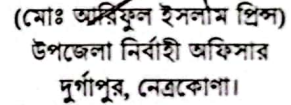 (মোঃ আরিফুল ইসলাম প্রিন্স)
উপজেলা নির্বাহী অফিসার
দুর্গাপুর, নেত্রকোণা।